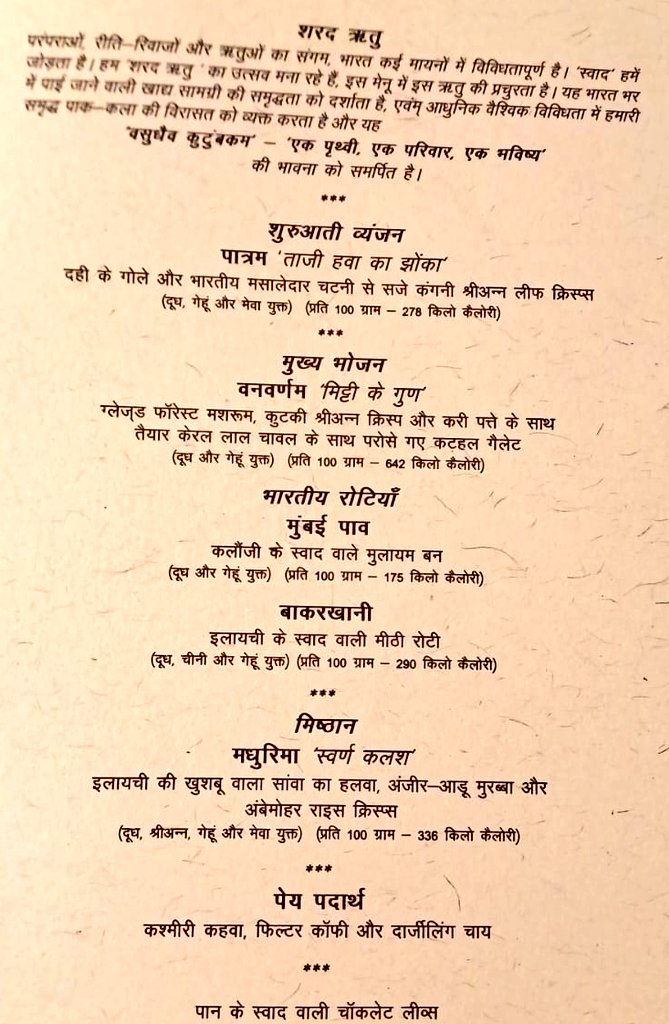 शरद ऋतु
परंपराओं, रीति–रिवाजों और ऋतुओं का संगम, भारत कई मायनों में विविधतापूर्ण है। 'स्वाद' हमें
जोड़ता है। हम 'शरद ऋतु ' का उत्सव मना रहे हैं, इस मेनू में इस ऋतु की प्रचुरता है। यह भारत भर
में पाई जाने वाली खाद्य सामग्री की समृद्धता को दर्शाता है, एवंम् आधुनिक वैश्विक विविधता में हमारी
समृद्ध पाक–कला की विरासत को व्यक्त करता है और यह
'वसुधैव कुटुंबकम' – 'एक पृथ्वी, एक परिवार, एक भविष्य'
की भावना को समर्पित है।
***
शुरुआती व्यंजन
पात्रम 'ताजी हवा का झोंका'
दही के गोले और भारतीय मसालेदार चटनी से सजे कंगनी श्रीअन्न लीफ क्रिस्प्स
(दूध, गेहूं और मेवा युक्त) (प्रति 100 ग्राम – 278 किलो कैलोरी)
***
मुख्य भोजन
वनवर्णम 'मिट्टी के गुण'
ग्लेज्ड फॉरेस्ट मशरूम, कुटकी श्रीअन्न क्रिस्प और करी पत्ते के साथ
तैयार केरल लाल चावल के साथ परोसे गए कटहल गैलेट
(दूध और गेहूं युक्त) (प्रति 100 ग्राम – 642 किलो कैलोरी)
भारतीय रोटियाँ
मुंबई पाव
कलौंजी के स्वाद वाले मुलायम बन
(दूध और गेहूं युक्त) (प्रति 100 ग्राम – 175 किलो कैलोरी)
बाकरखानी
इलायची के स्वाद वाली मीठी रोटी
(दूध, चीनी और गेहूं युक्त) (प्रति 100 ग्राम – 290 किलो कैलोरी)
***
मिष्ठान
मधुरिमा 'स्वर्ण कलश'
इलायची की खुशबू वाला सांवा का हलवा, अंजीर–आड़ू मुरब्बा और
अंबेमोहर राइस क्रिस्प्स
(दूध, श्रीअन्न, गेहूं और मेवा युक्त) (प्रति 100 ग्राम – 336 किलो कैलोरी)
***
पेय पदार्थ
कश्मीरी कहवा, फिल्टर कॉफी और दार्जीलिंग चाय
***
पान के स्वाद वाली चॉकलेट लीव्स